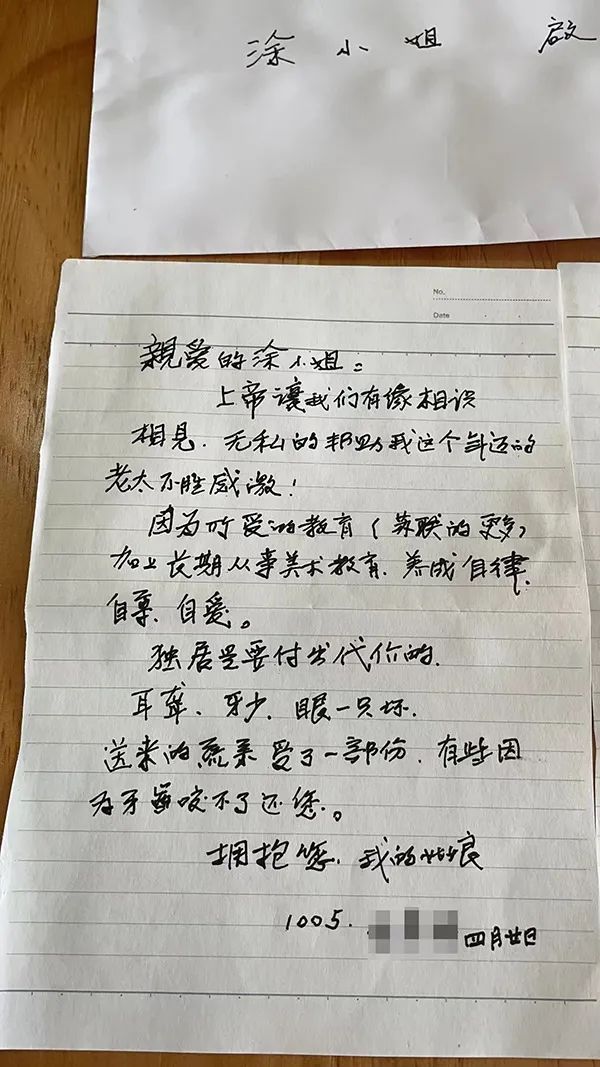 涂小姐 启
No.
Date
親爱的涂小姐：
上帝讓我们有缘相识
相見．无私的帮助我这个年迈的
老太不胜感激！
因为所受的教育（苏联的更多）
加上长期从事美术教育．养成自律．
自尊．自爱。
独居是要付出代价的．
耳聋．牙少．眼一只坏．
送来的蔬菜受了一部份．有些因
为牙齒咬不了还您。
拥抱您．我的姑娘
1005.
四月廿日